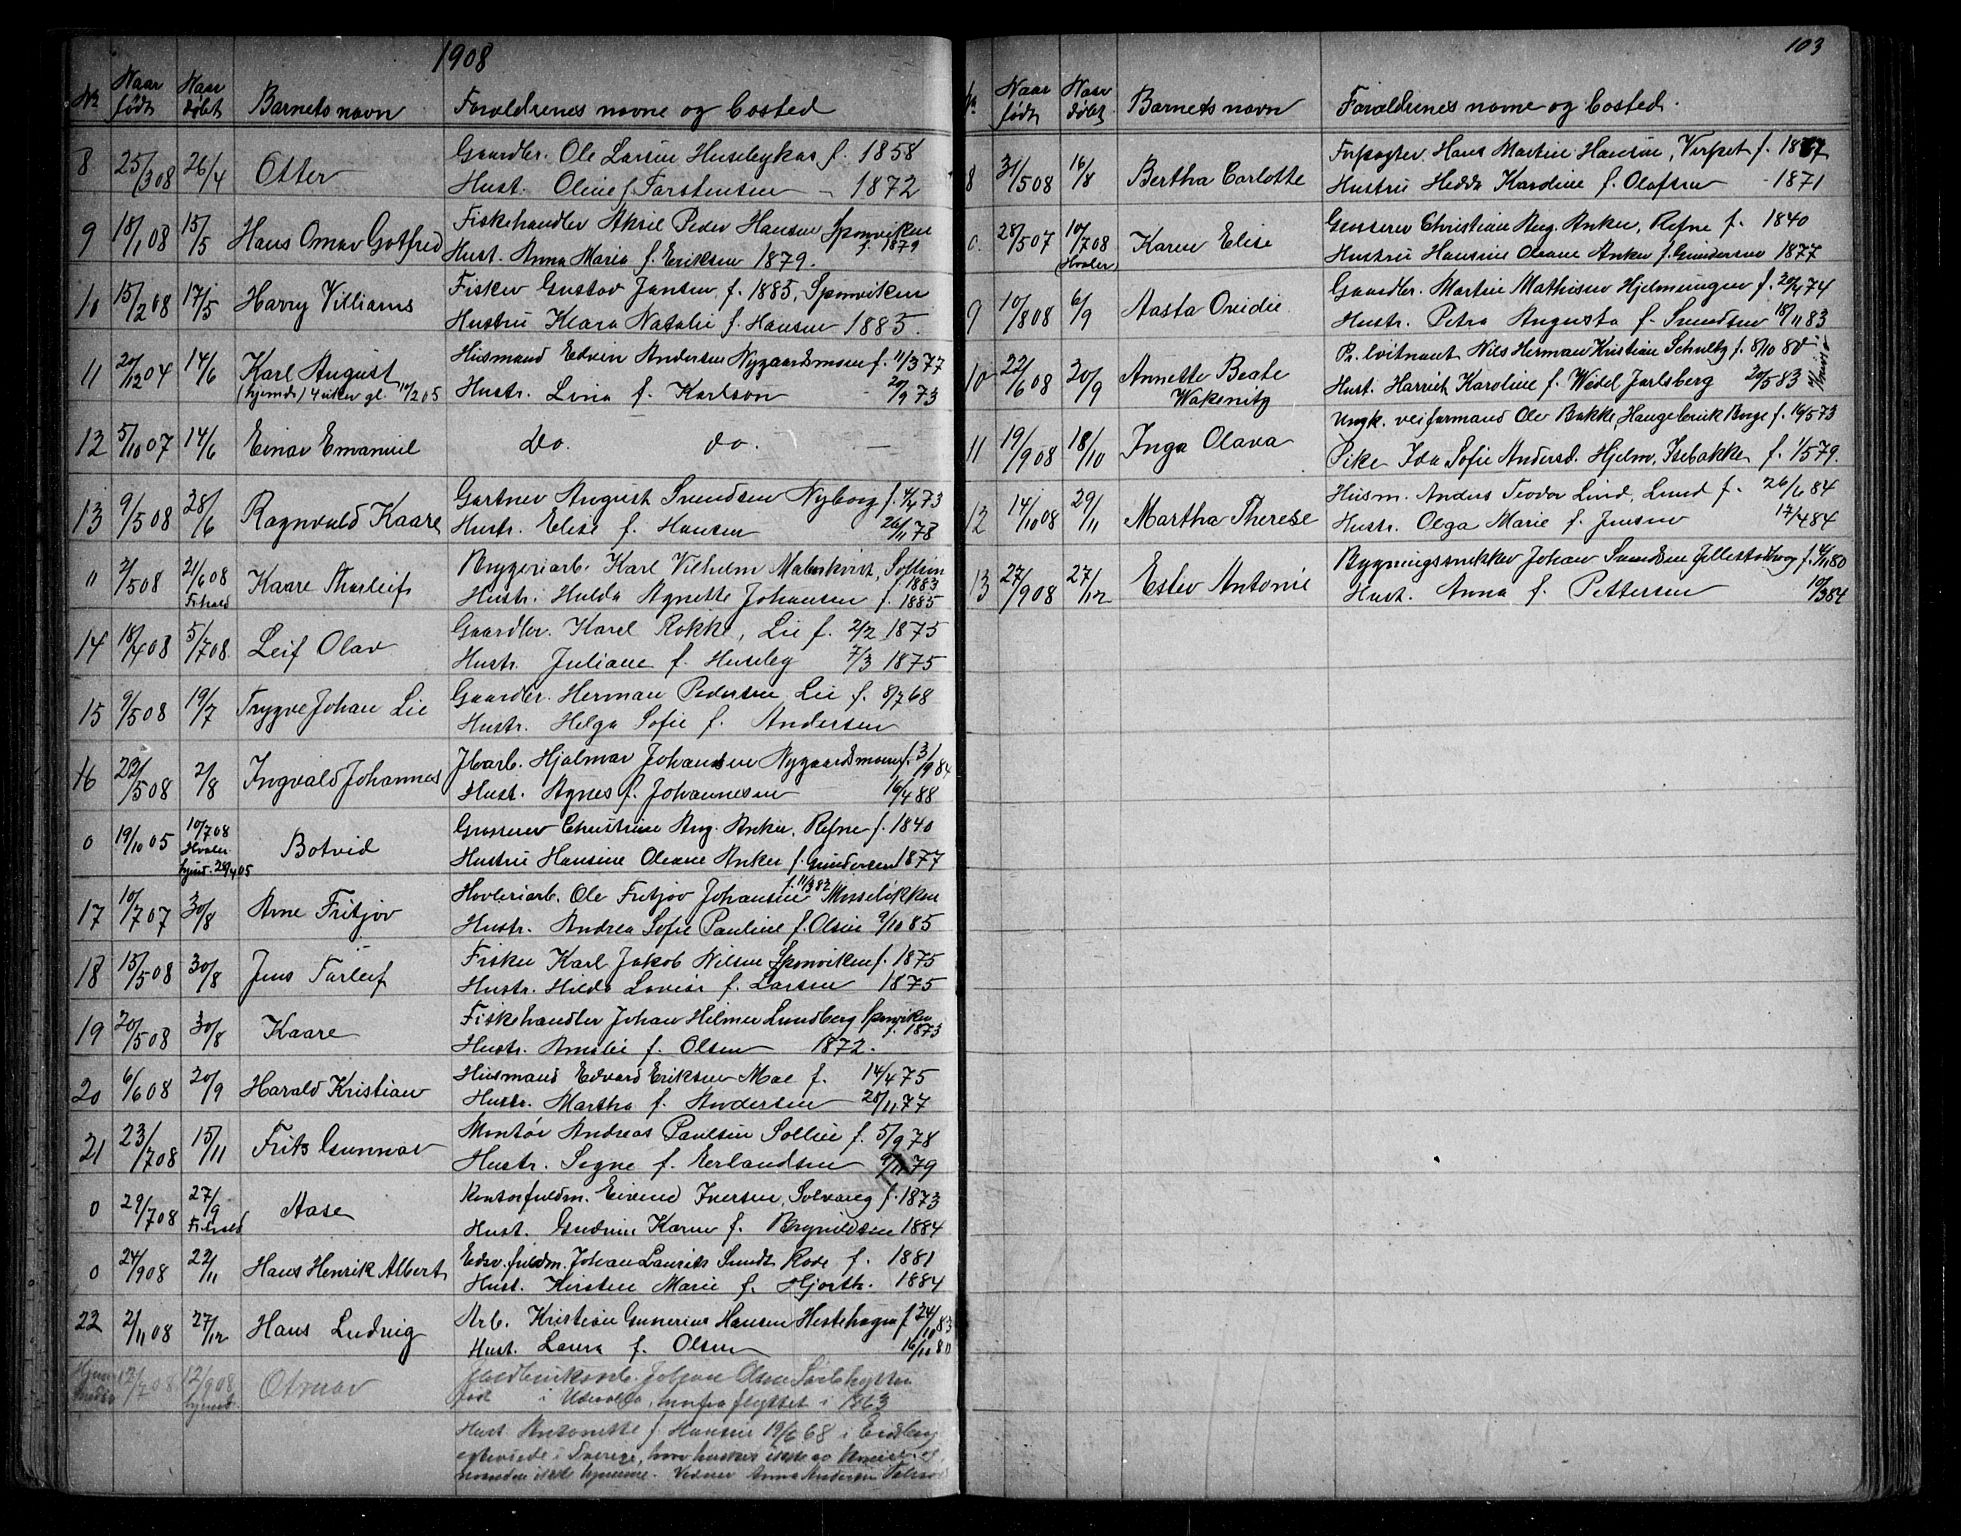 1908
No Naar født Naar døbt Barnets navn Forældrenes navne og bosted
8 25/3 08 26/4 Otter Gaardbr. Ole Larsen Husebykas f. 1858
Hust. Oline f. Torstensen - 1872
9 18/1 08 15/5 Hans Omar Gotfred Fiskehandler Aksel Peder Hansen Sponviken f. 1879
Hust. Anna Maria f. Eriksen 1879.
10 15/2 08 17/5 Harry Villiams Fisker Gustav Jansen f. 1885, Sponviken
Hustru Klara Natalie f. Hansen 1885.
11 20/12 04 14/6 Karl August Husmand Edvin Andersen Nygaardsmoen f. 11/3 77
(hjemdø) 4 uker gl. 10/2 05 Hustr. Lina f. Karlson - 20/9 73
12 5/10 07 14/6 Einar Emanuel do. do. —
13 9/5 08 28/6 Ragnvald Kaare Gartner August Svendsen Nyborg f. 4/4 73
Hustr. Elise f. Hansen 26/11 78
" 2/5 08 21/6 08 Fr.hald Kaare Tharleif Bryggeriarb. Karl Vilhelm Malmkvist, Sollien f. 1883
Hustr. Hulda Agnette Johansen f. 1885
14 18/4 08 5/7 08 Leif Olav Gaardbr. Karel Rokke, Lie f. 2/2 1875
Hustr. Juliane f. Huseby 7/3 1875
15 9/5 08 19/7 Trygve Johan Lie Gaardbr. Herman Pedersen Lie f. 8/7 68
Hustr. Helga Sofie f. Andersen
16 22/5 08 2/8 Ingvald Johannes Jbarb. Hjalmar Johansen Nygaardsmoen f. 3/9 84
Hust. Agnes f. Johannesen 16/4 88
0 19/10 05 10/7 08 Hvaler Botvid Grosserer Christian Aug. Anker, Refne f. 1840
hjemd. 28/4 05 Hustru Hansine Oleane Anker f. Gundersen 1877
17 10/7 07 30/8 Arne Fritjov Høvleriarb. Ole Fritjov Johansen f. 11/3 82 Mosseløkken
Hustr. Andrea Sofie Pauline f. Olsen 9/10 85
18 15/5 08 30/8 Jens Torleif Fisker Karl Jakob Nilsen Sponviken f. 1875
Hustr. Hilda Lovise f. Larsen 1875
19 20/5 08 30/8 Kaare Fiskehandler Johan Hilmer Lundberg Sponviken f. 1873
Hustr. Amalie f. Olsen 1872.
20 6/6 08 20/9 Harald Kristian Husmand Edvard Eriksen Moe f. 14/4 75
Hustr. Martha f. Andersen 28/11 77
21 23/7 08 15/11 Frits Gunnar Montør Andreas Paulsen Sollie f. 5/9 78
Hustr. Signe f. Erlandsen 9/11 79
0 29/7 08 27/9 Fr.hald Aase Kontorfuldm. Eivind Iversen, Solvang f. 1873
Hust. Gudrun Karen f. Brynildsen 1884
0 24/9 08 22/11 Hans Henrik Albert Edsv. fuldm. Johan Laurits Sundt Rode f. 1881
Hust. Kirsten Marie f. Hjorth. 1884
22 2/11 08 27/12 Hans Ludvig Arb. Kristian Gunerius Hansen Hestehagen f 24/10 83
Hust. Laura f. Olsen 16/10 80
Hjemmedøbt 12/7 08 12/9 08 hjemd. Otmar Johan Olsen
født i Uddevalla, herfra flyttet i 1863
Hust. Antonette f. Hansen 19/6 68 i
i Sverige,
hjemme. Vidner Anna Andersen
103
No Naar født Naar døbt Barnets navn Forældrenes navne og bosted.
8 31/5 08 16/8 Bertha Carlotte Forpagter Hans Martin Hansen, Verpet f. 1867
Hustru Hedda Karoline f. Olafsen - 1871
0. 28/5 07 10/7 08 (Hvaler) Karen Elise Grosserer Christian Aug. Anker, Refne f. 1840
Hustru Hansine Oleane Anker f. Gundersen 1877
9 10/8 08 6/9 Aasta Ovidie Gaardbr. Martin Mathisen Hjelmungen f. 20/4 74
Hustr. Petra Augusta f. Svendsen 18/11 83
10 22/6 08 20/9 Annette Beate Wakenitz Pr. løitnant Nils Herman Kristian Schultz f. 8/10 80
Hust. Harriet Karoline f. Wedel Jarlsberg 20/5 83
11 19/9 08 18/10 Inga Olava Ungk. veiformand Ole Bakke Haugebrek Borge f. 16/5 73
Pike Ida Sofie Andersd. Hjelm, Isebakke f. 1/5 79.
12 14/10 08 29/11 Martha Therese Husm. Anders Teodor Lind, Lund f. 26/6 84
Hustr. Olga Marie f. Jensen 17/4 84
13 27/9 08 27/12 Ester Antonie Bygningssnekker Johan Svendsen f. 4/11 80
Hust. Anna f. Pettersen 10/3 84